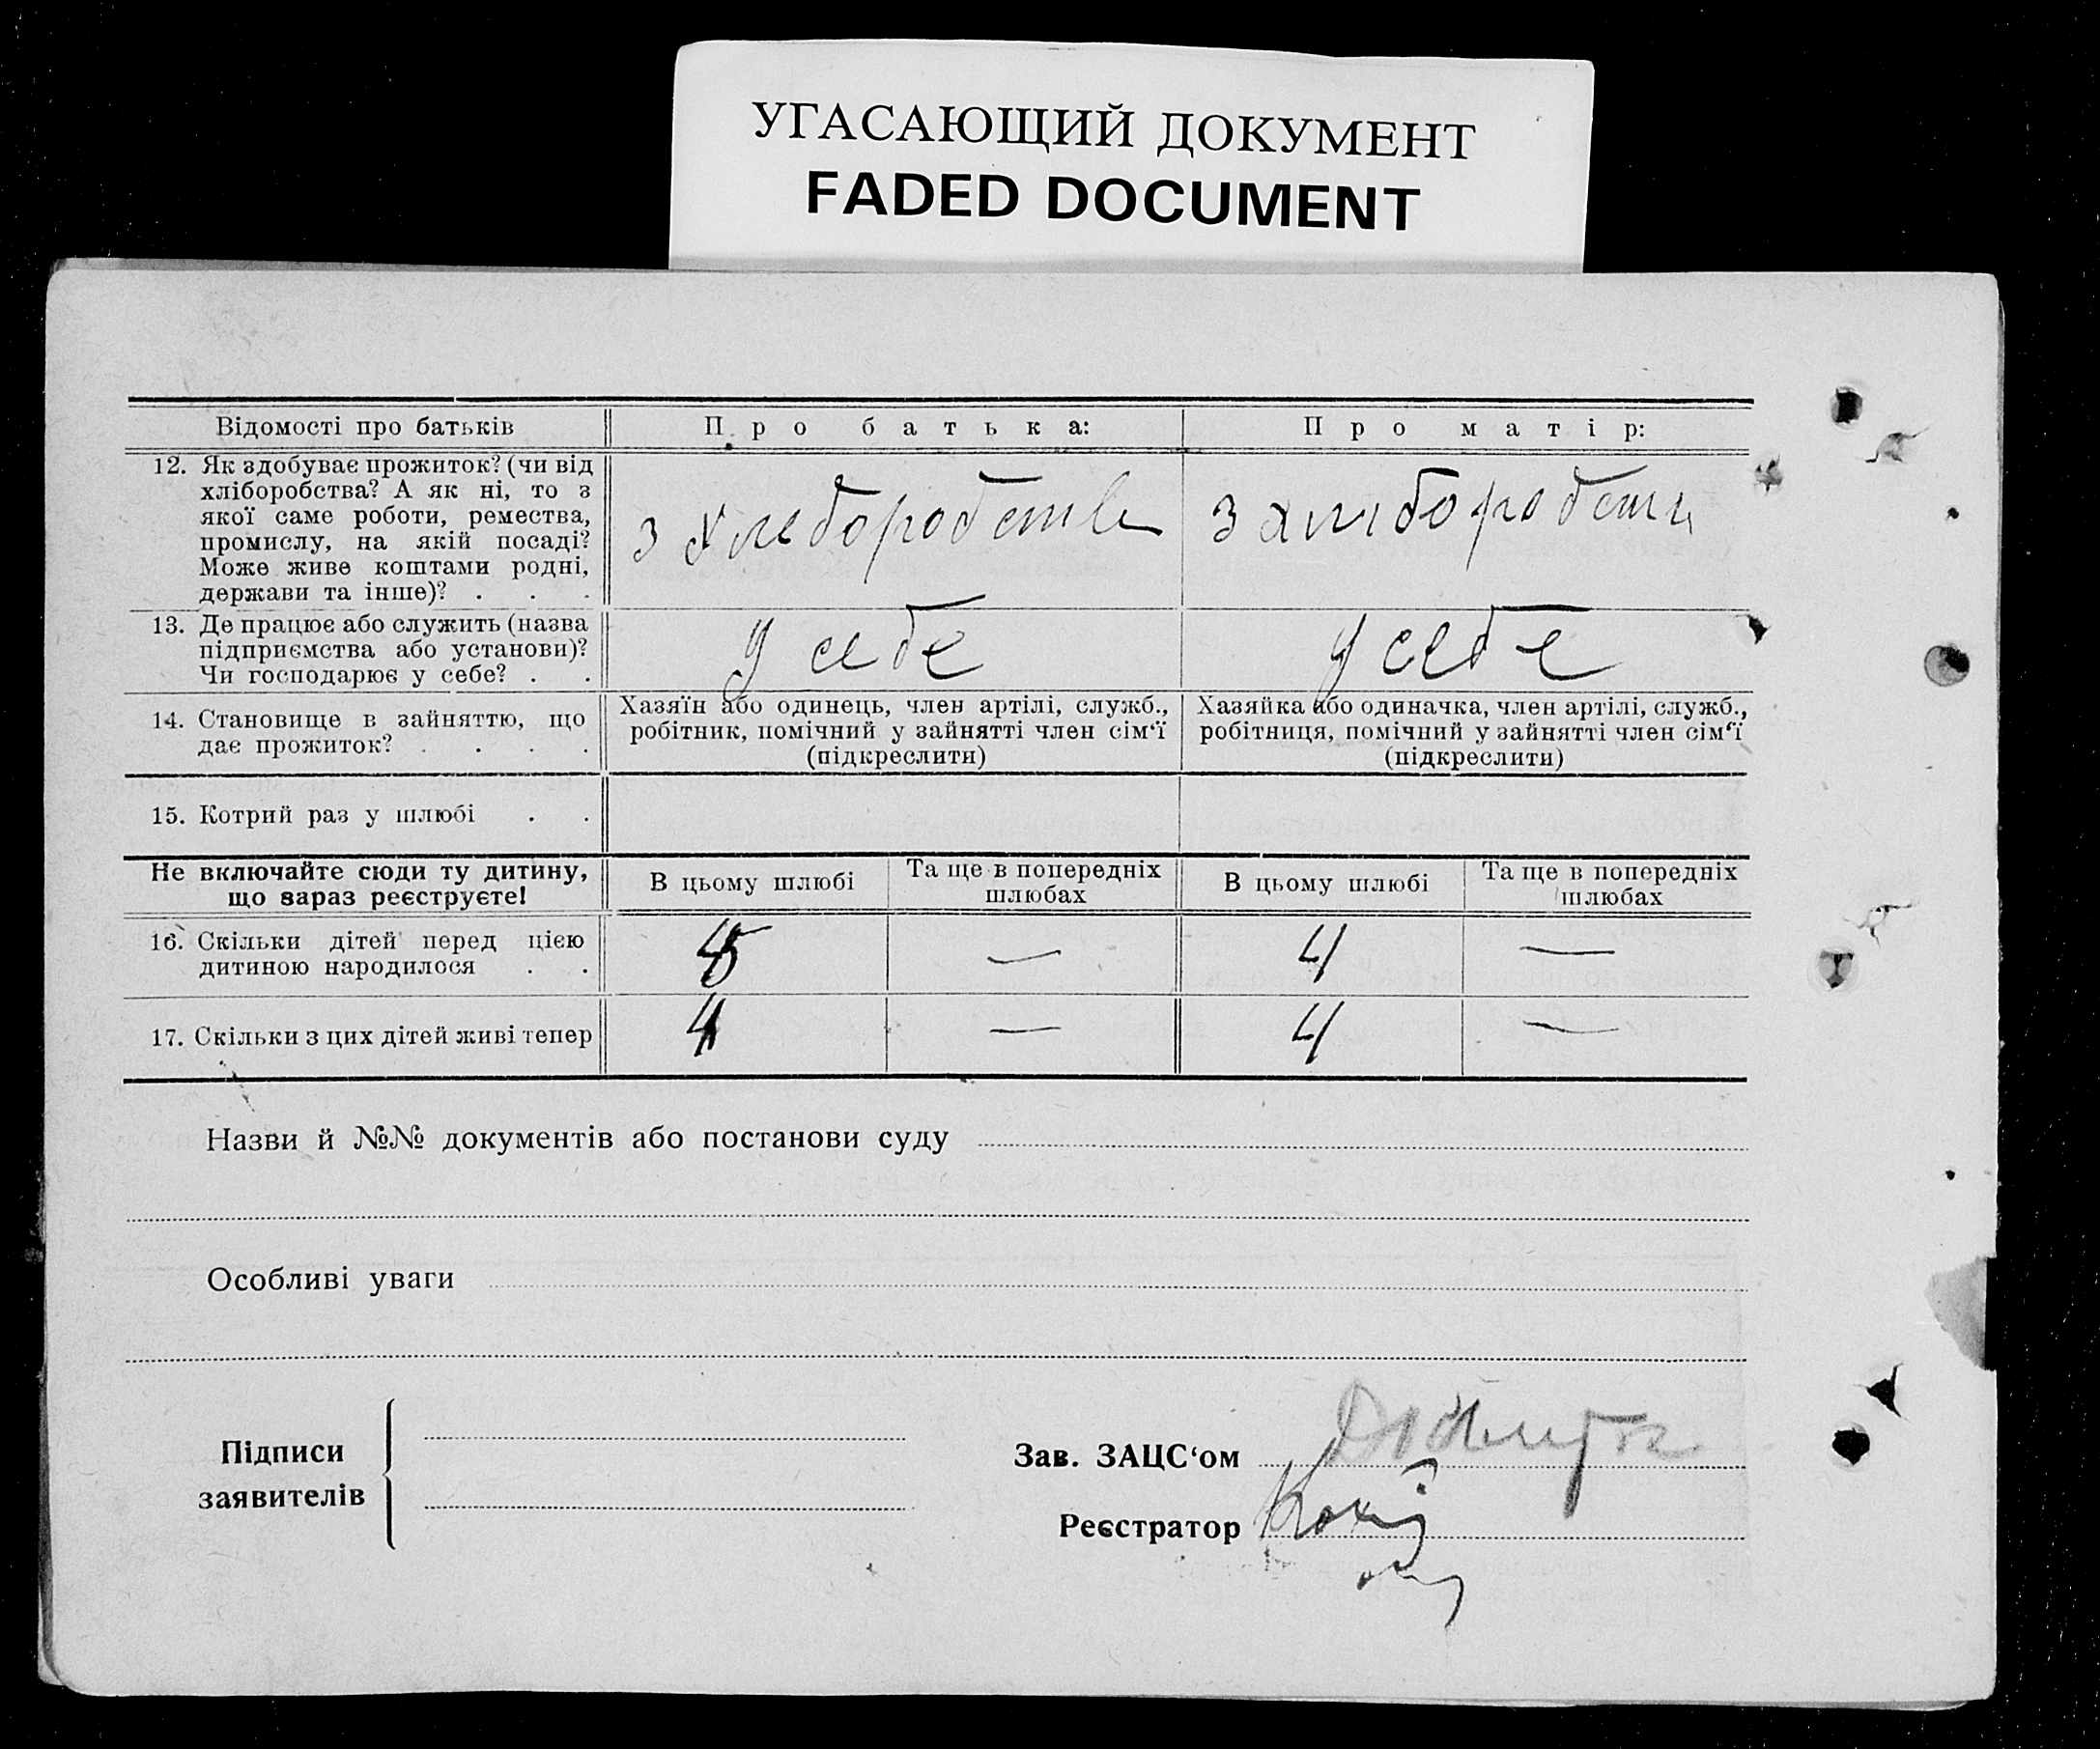 УГАСАЮЩИЙ ДОКУМЕНТ
FADED DOCUMENT
Відомості про батьків
Про батька:
Про матір:
12. Як здобуває прожиток? (чи від
хліборобства? А як ні, то з
якої саме роботи, ремества,
промислу, на якій посаді?
Може живе коштами родні,
держави та інше)? . . .
з хлеборобства
з хліборобства
13. Де працює або служить (назва
підприємства або установи)?
Чи господарює у себе? . .
у себе
у себе
14. Становище в зайняттю, що
дає прожиток? . . . .
Хазяїн або одинець, член артілі, служб.,
робітник, помічний у зайнятті член сім‘ї
(підкреслити)
Хазяйка або одиначка, член артілі, служб.,
робітниця, помічний у зайнятті член сім‘ї
(підкреслити)
15. Котрий раз у шлюбі . .
Не включайте сюди ту дитину,
що зараз реєструєте!
В цьому шлюбі
Та ще в попередніх
шлюбах
В цьому шлюбі
Та ще в попередніх
шлюбах
16. Скільки дітей перед цією
дитиною народилося . .
— 4 —
17. Скільки з цих дітей живі тепер
4 — 4 —
Назви й №№ документів або постанови суду
Особливі уваги
Підписи
заявителів
Зав. ЗАЦС‘ом
Реєстратор